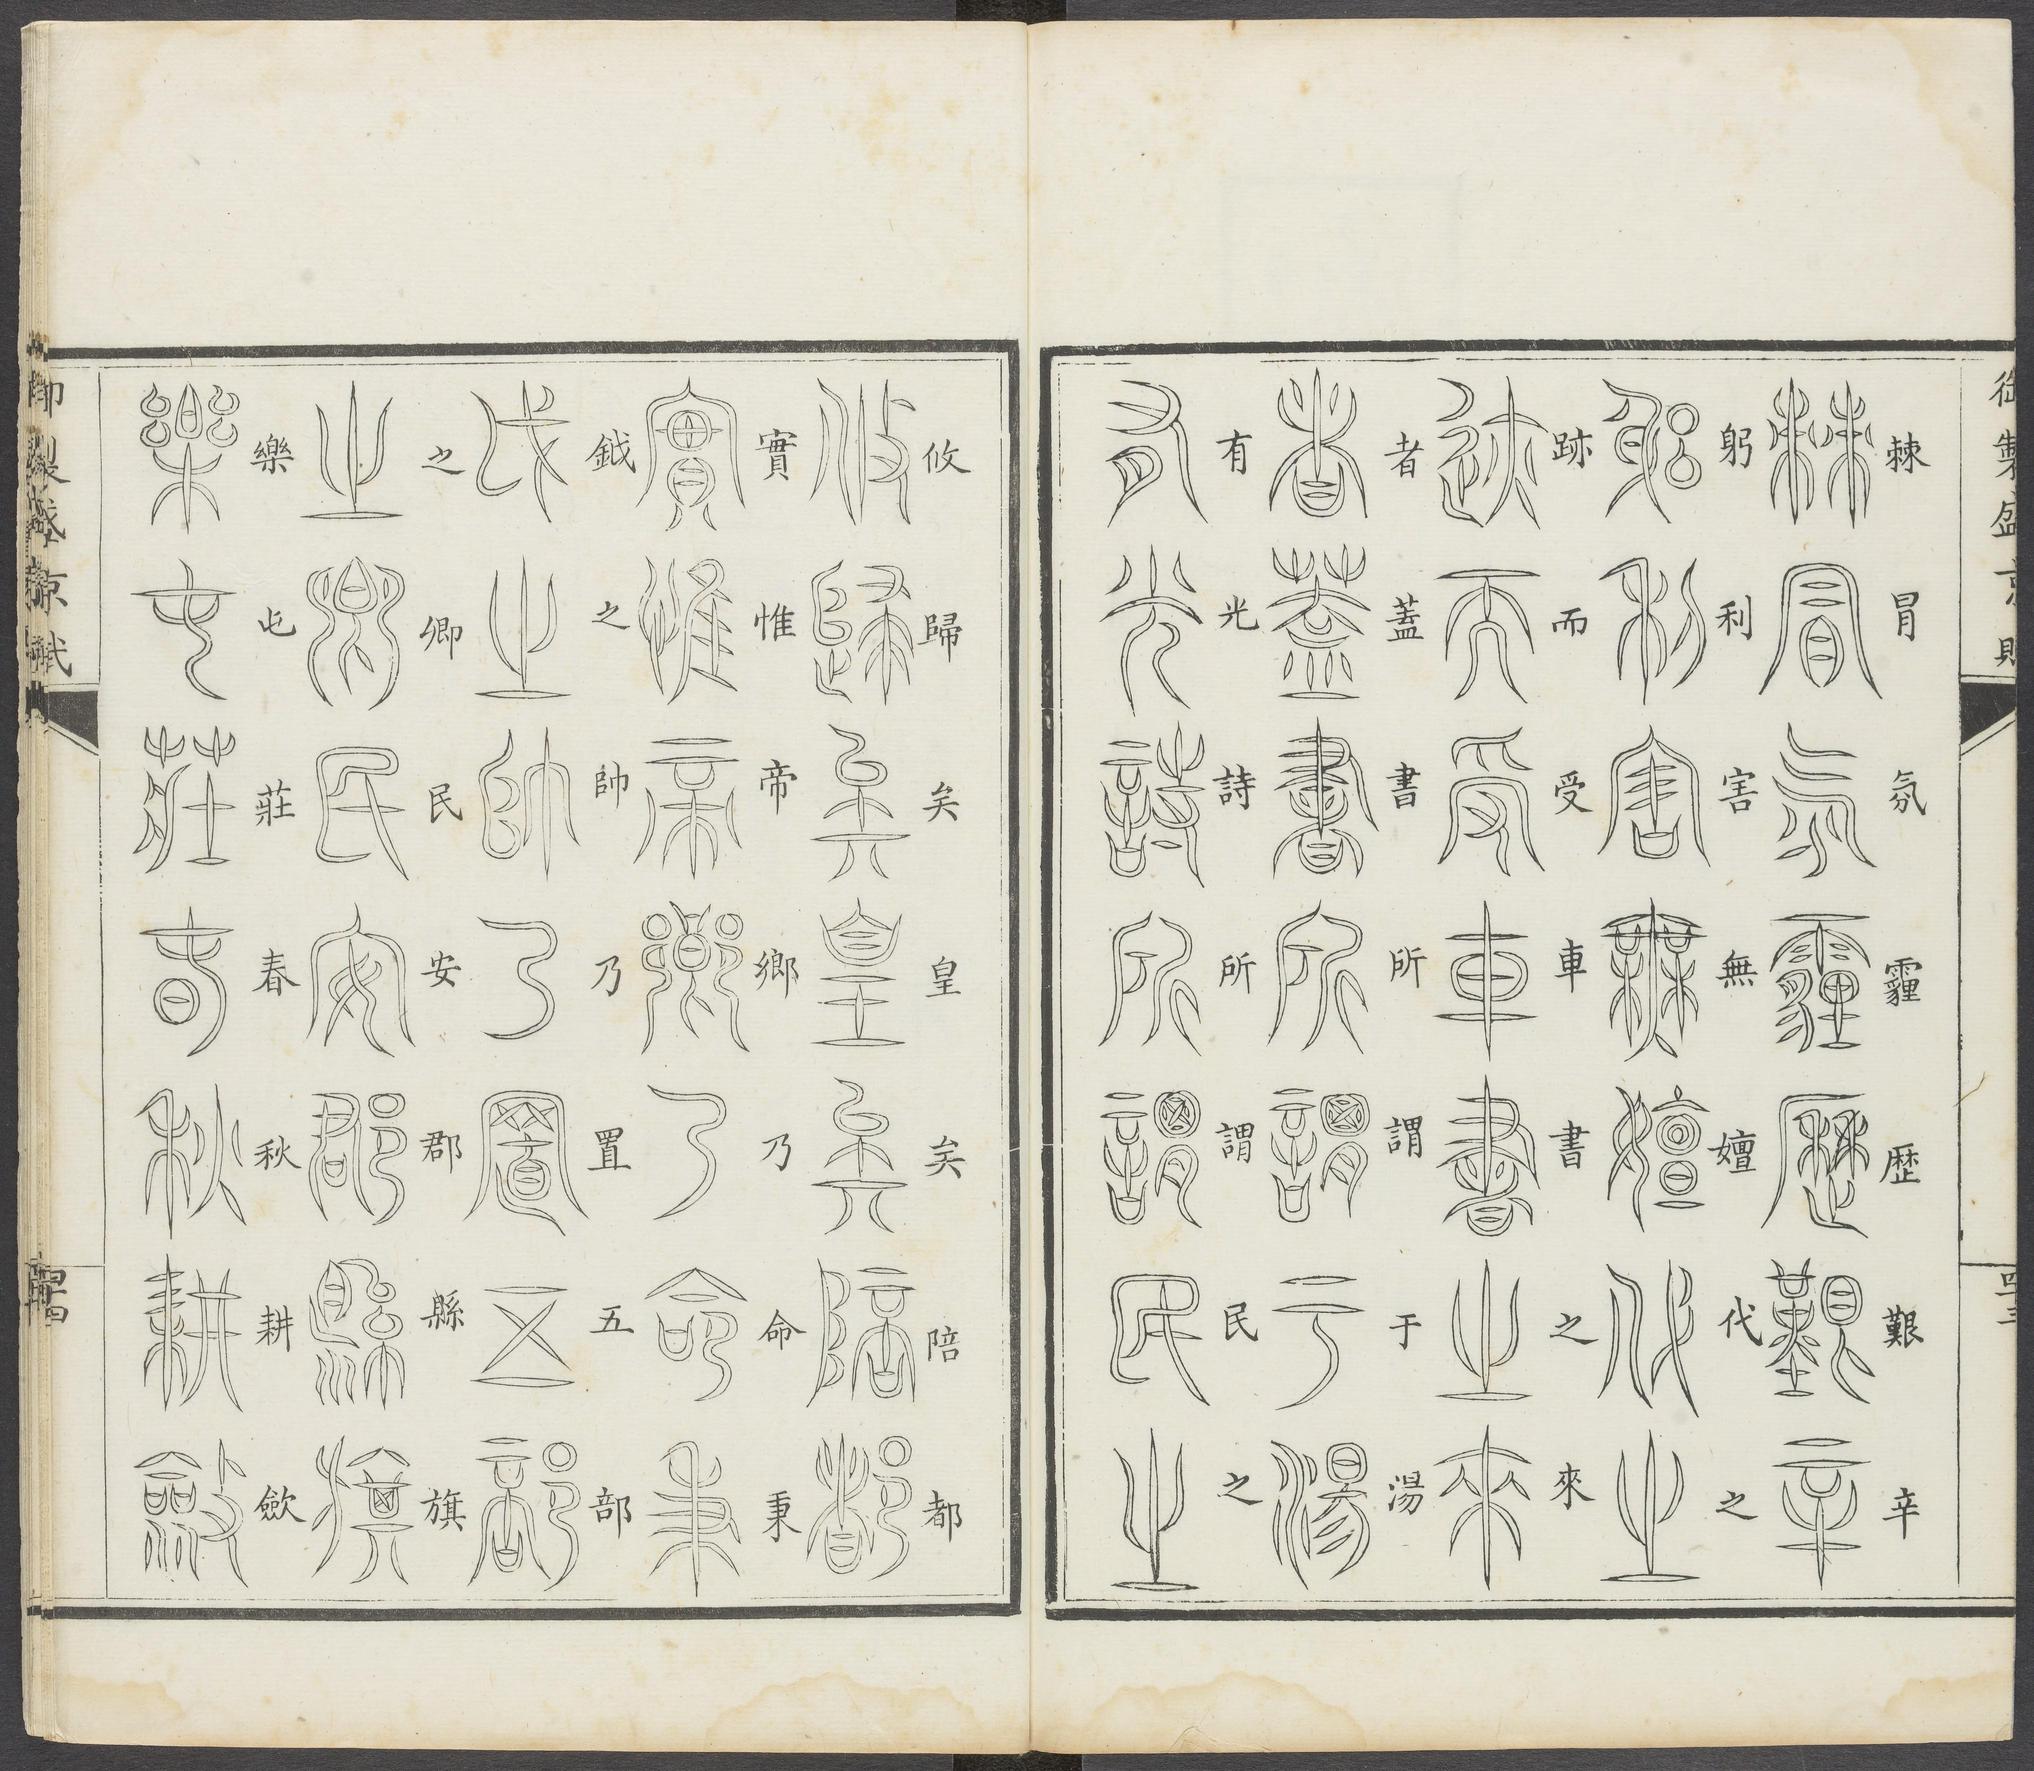 御製盛京賦
四三
棘冒氛霾歷艱辛
躬利害無嬗代之
跡而受車書之來
者蓋書所謂于湯
有光詩所謂民之
攸歸矣皇矣陪都
實惟帝鄉乃命秉
鉞之帥乃置五部
之卿民安郡縣旗
樂屯莊春秋耕斂
御製盛京賦
四四